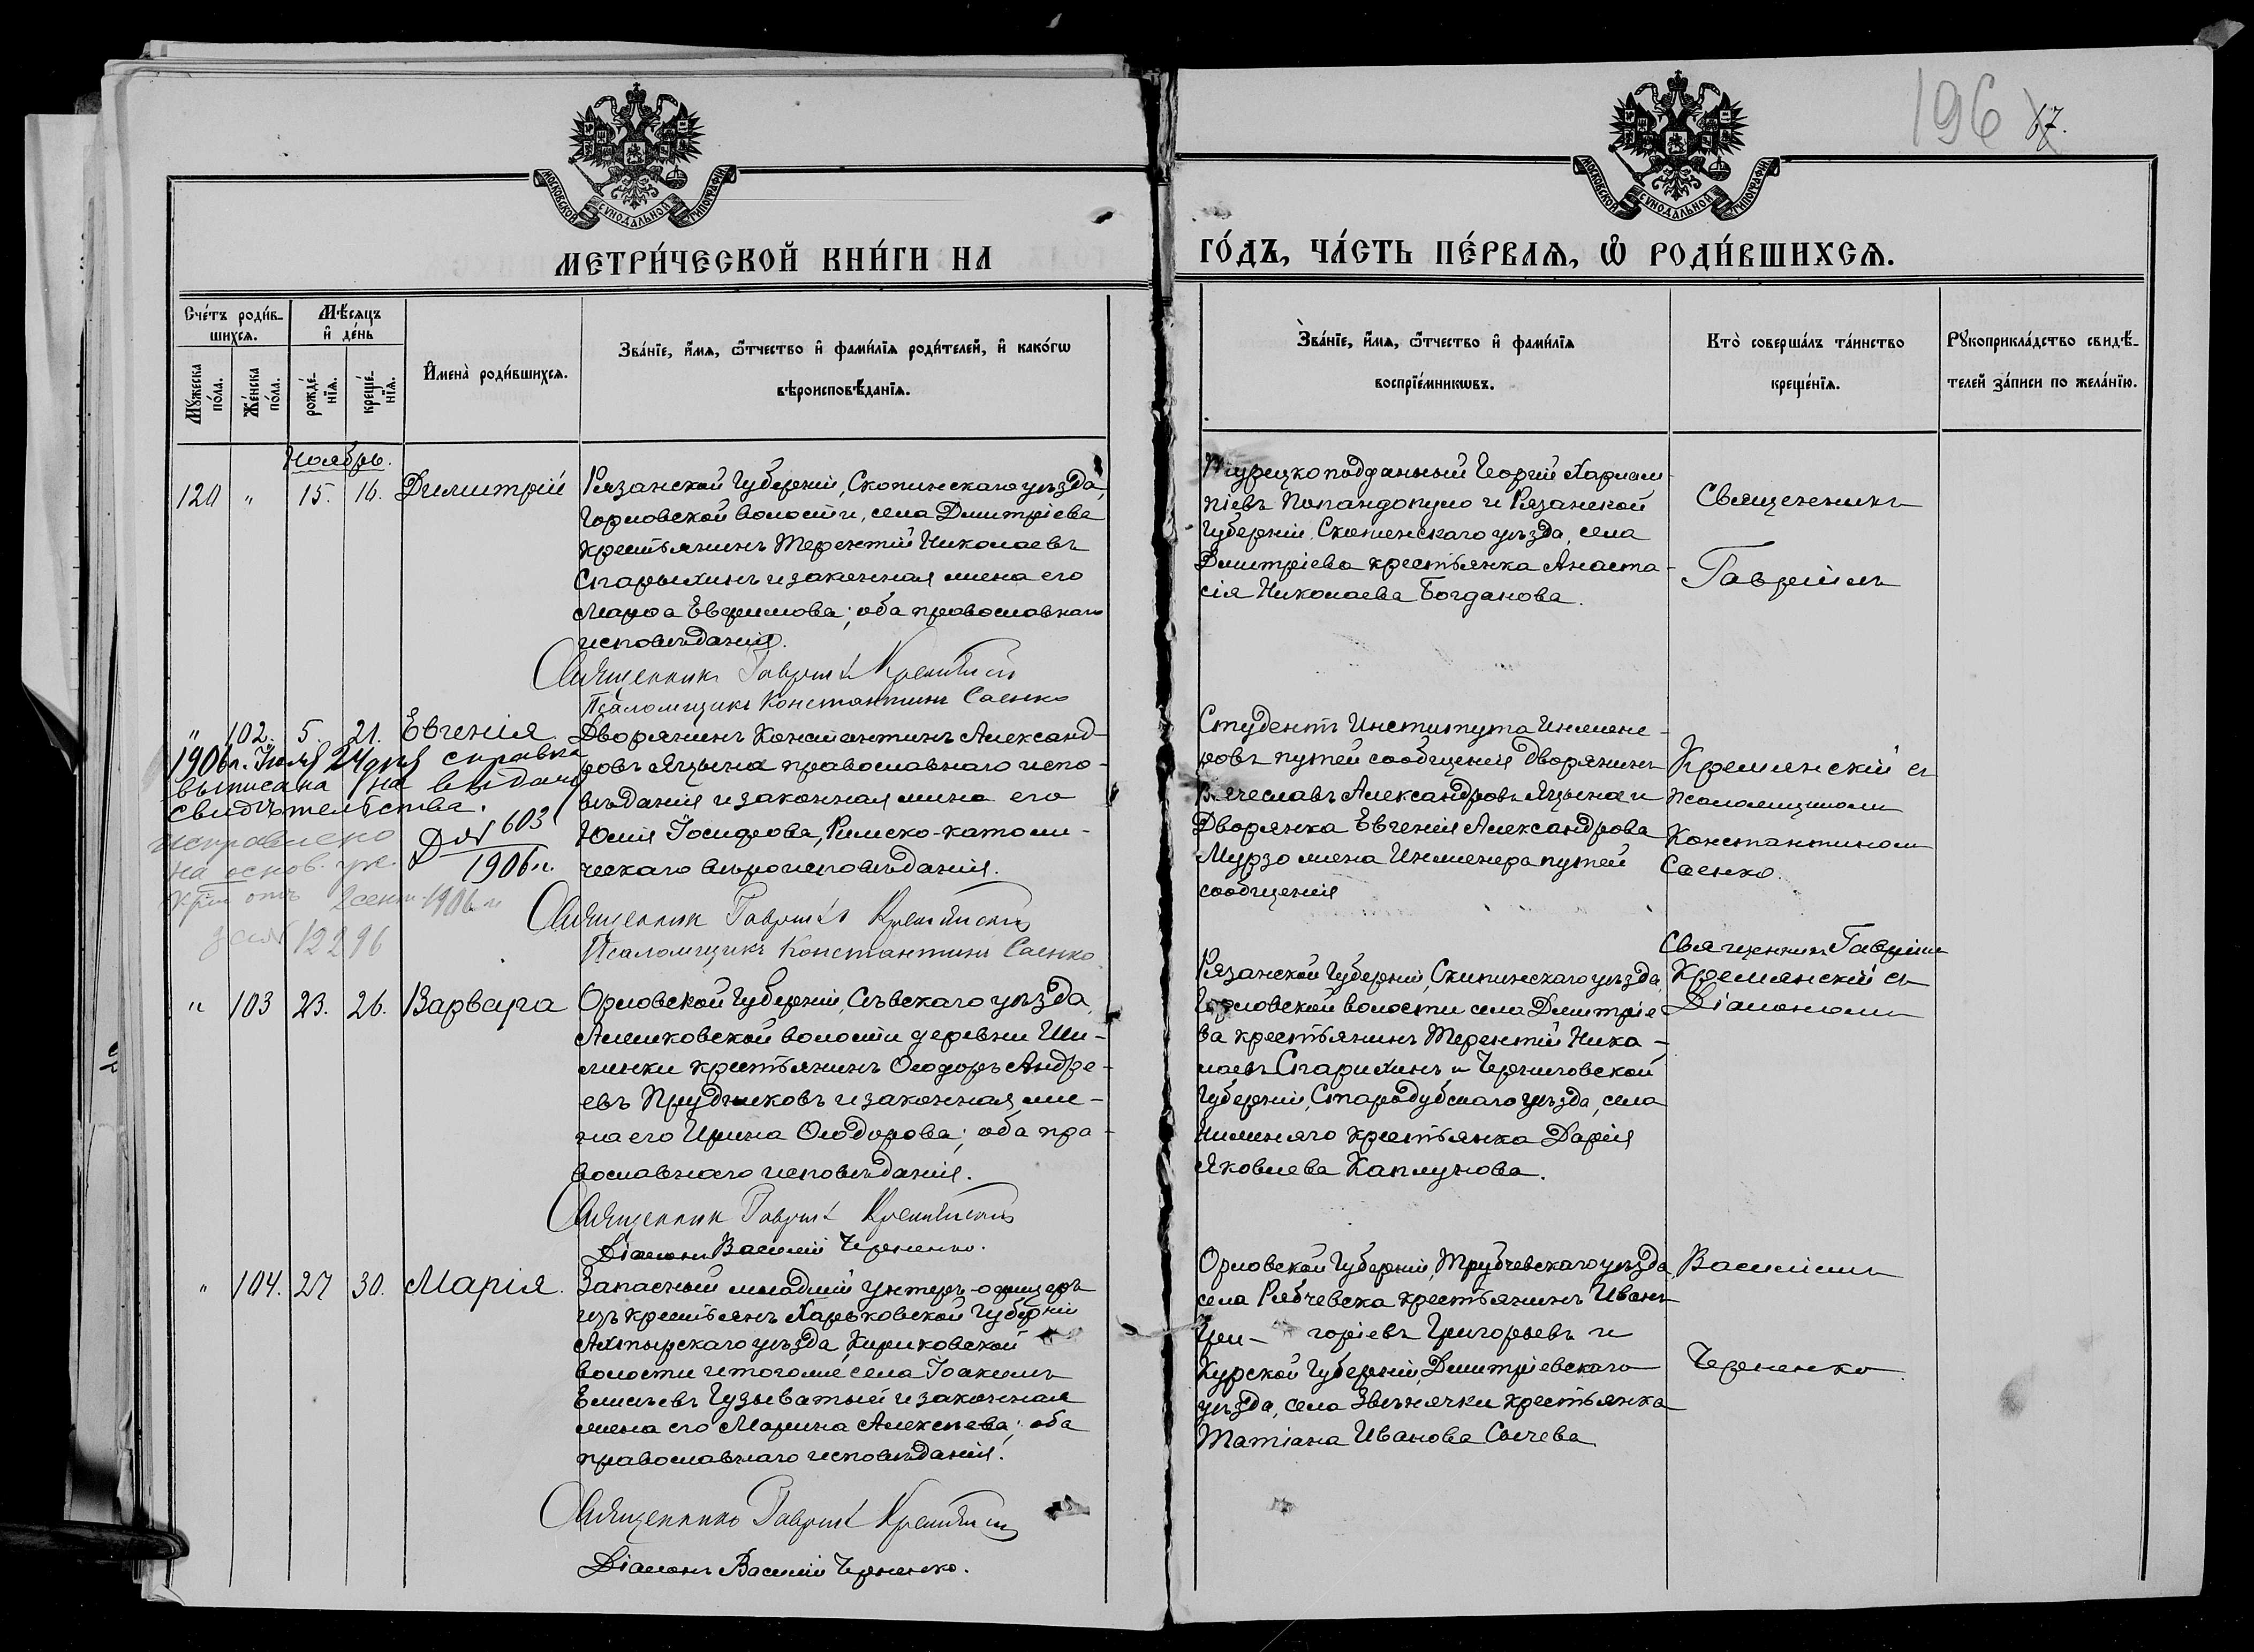 196 67.
МОСКОВСКОЙ СУНОДАЛЬНОЙ ТИПОГРАФІИ
МОСКОВСКОЙ СУНОДАЛЬНОЙ ТИПОГРАФІИ
МЕТРИ́ЧЕСКОЙ КНИ́ГИ НА
ГО́ДЪ, ЧА́СТЬ ПЕ́РВАѦ, Ѡ РОДИ́ВШИХСѦ.
Сче́тъ роди́в-
шихсѧ.
Мѣ́сѧцъ
и де́нь
Мꙋжеска
по́ла.
Же́нска
по́ла.
рожде́-
нїѧ.
креще́-
нїѧ.
Имена̀ роди́вшихсѧ.
Зва́нїе, и́мѧ, ѻ́тчество и фами́лїѧ роди́телей, и како́гѡ
вѣроисповѣ́данїѧ.
Зва́нїе, и́мѧ, ѻ́тчество и фами́лїѧ
воспрїе́мникѡвъ.
Кто̀ соверша́лъ та́инство
креще́нїѧ.
Рꙋкоприкла́дство свидѣ́-
телей за́писи по жела́нїю.
Ноябрь.
120 " 15. 16. Димитрій
Рязанской Губерніи, Скопинскаго уѣзда,
Горловской волости, села Дмитріева
крестьянинъ Терентій Николаевъ
Старыхинъ и законная жена его
Марѳа Евфимова; оба православнаго
исповѣданія.
Священникъ Гавріилъ Кремянскій
Псаломщикъ Константинъ Саенко
Турецкоподданный Георгій Харлам-
піевъ Попандопуло и Рязанской
Губерніи, Скопинскаго уѣзда, села
Дмитріева крестьянка Анаста-
сія Николаева Богданова.
Священникъ
Гавріилъ
" 102. 5. 21. Евгенія
Дворянинъ Константинъ Александ-
ровъ Яцына православнаго испо-
вѣданія и законная жена его
Юлія Іосифова, Римско-католи-
ческаго вѣроисповѣданія.
Священникъ Гавріилъ Кремянскій
Псаломщикъ Константинъ Саенко.
1906 г. Іюля 24 дня справка
выписана на выдачу
свидѣтельства.
Д № 603
1906 г.
исправлено
на основ. ук.
отъ 2 сент. 1906 г.
за № 12296
Студентъ Института Инжене-
ровъ путей сообщенія Дворянинъ
Вячеславъ Александровъ Яцына и
Дворянка Евгенія Александрова
Мурзо жена Инженера путей
сообщенія
Кремянскій съ
Псаломщикомъ
Константиномъ
Саенко.
" 103 23. 26. Варвара
Орловской Губерніи, Сѣвскаго уѣзда,
Алешковской волости деревни Ши-
линки крестьянинъ Ѳеодоръ Андре-
евъ Прудниковъ и законная же-
на его Ирина Ѳеодорова; оба пра-
вославнаго исповѣданія.
Священникъ Гавріилъ Кремянскій
Діаконъ Василій Черненко.
Рязанской Губерніи, Скопинскаго уѣзда,
Горловской волости села Дмитріе-
ва крестьянинъ Терентій Нико-
лаевъ Старихинъ и Черниговской
Губерніи, Стародубскаго уѣзда, села
крестьянка Дарія
Яковлева Каплунова.
Священникъ Гавріилъ
Кремянскій съ
Діакономъ
" 104. 27 30. Марія.
Запасный младшій унтеръ-офицеръ
изъ крестьянъ Харьковской Губерніи
Ахтырскаго уѣзда, Кириковской
волости и того же села Іоакимъ
Елисѣевъ Гузыватый и законная
жена его Марина Алексѣева; оба
православнаго исповѣданія.
Священникъ Гавріилъ Кремянскій
Діаконъ Василій Черненко.
Орловской Губерніи, Трубчевскаго уѣзда,
села Рябчевска крестьянинъ Иванъ
Гри- горіевъ Григорьевъ и
Курской Губерніи, Дмитріевскаго
уѣзда, села Звѣнячки крестьянка
Татіана Иванова Сычева
Василіемъ
Черненко.